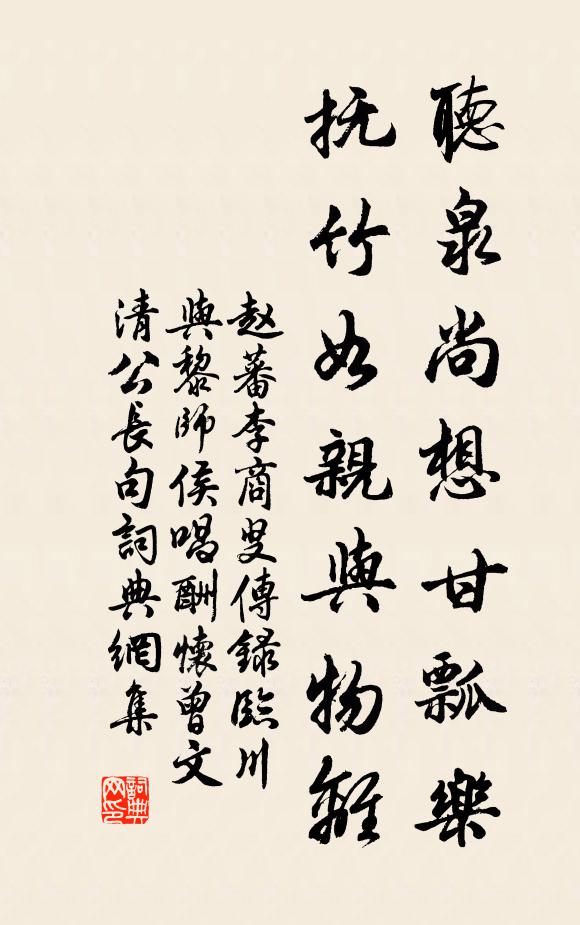 聽泉尚想甘瓢樂
抚竹如親與物離
赵蕃李商叟傳録臨川
與黎師侯唱酬懷曾文
清公長句詞典網集
詞典
网印